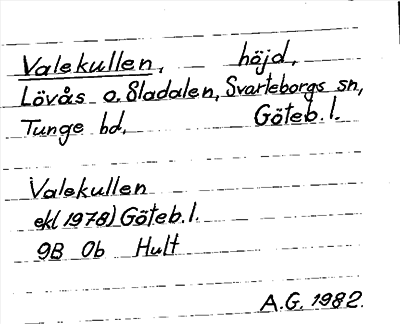 Valekullen, höjd,
Lövås o. Sladalen, Svarteborgs sn,
Tunge hd, Göteb. l.
Valekullen
ekl 1978) Göteb. l.
9B 0b Hult
A.G. 1982.